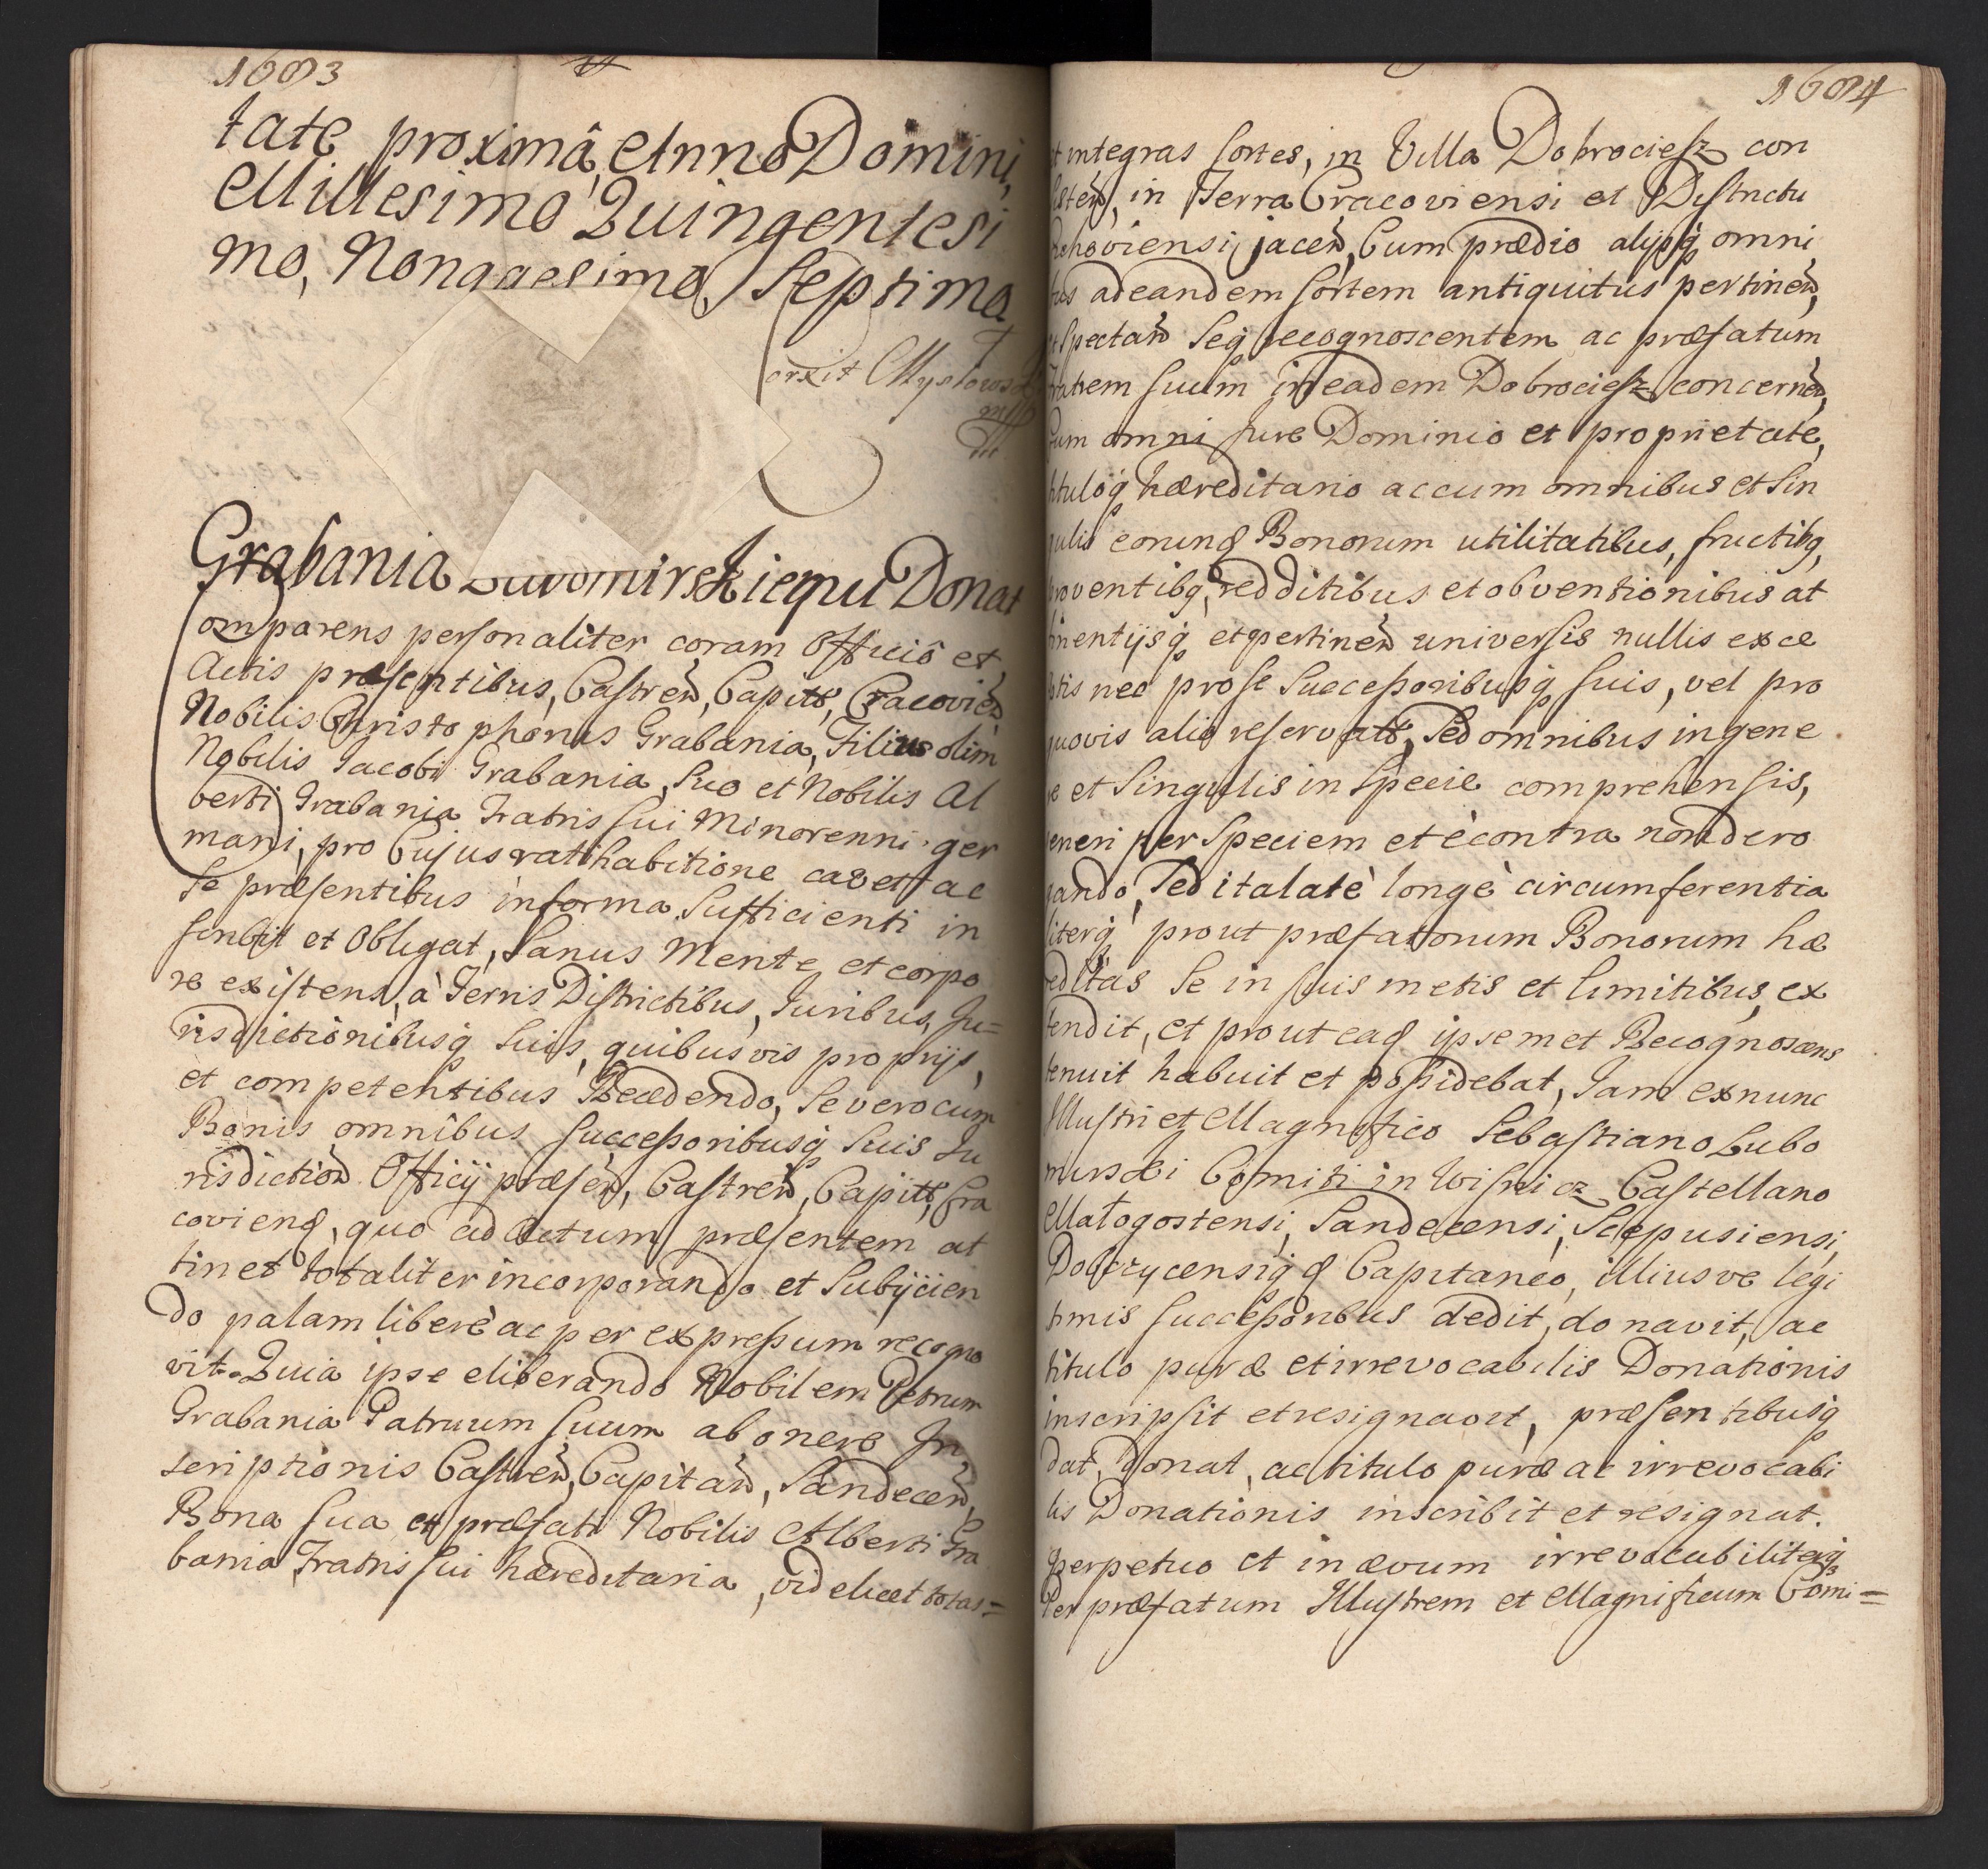 1603
tate proximâ, Anno Domini,
Millesimo Quingentesi
mo, Nonagesimo, Septimo
Grabania Lubomirskiequ Donat
omparens personaliter coram Officiô et
Actis præsentibus, Castren, Capitt, Cracovien
Nobilis Christophorus Grabania, Filius olim
Nobilis Jacobi Grabania, Suo et Nobilis Al
berti Grabania Fratris sui Minorenni ger
mani, pro Cujus ratihabitione cavet ac
se præsentibus in forma Sufficienti in
scribit et Obligat, Sanus Mente et corpo
re existens, à Terris Districtibus, Juribus, Ju=
risdictionibusq suis, quibusvis proprijs,
et competentibus Recedendo, Se vero cum
Bonis omnibus successoribusq suis Ju
risdiction Officij præsen, Castren, Capitt, Cra
covien, quo ad Actum præsentem at
tinet totaliter incorporando et Subijcien
do palam liberè ac per expressum recogno
vit. Quia ipse eliberando Nobilem Petrum
Grabania Patruum suum ab onere In,
scriptionis Castren, Capitan, Sandecen,
Bona sua et præfati Nobilis Alberti Gra
bania Fratris sui hæreditaria, videlicet totas=
1604
et integras sortes, in Villa Dobrociesz con
sisten, in Terra Cracoviensi et Districtu
Czchoviensi jacen, Cum prædio alijsq omni
bus ad eandem sortem antiquitus pertinen,
et Spectan Seq recognoscentem ac præfatum
Fratrem suum in eadem Dobrociesz concernen,
Cum omni Jure Dominio et proprietate,
titulóq hæreditario ac cum omnibus et Sin
gulis eorund Bonorum utilitatibus, fructibq,
proventibq, redditibus et obventionibus at
tinentijsq et pertinen universis nullis exce
ptis nec pro se Successoribusq suis, vel pro
quovis alio reservatt, Sed omnibus in gene
re et Singulis in Specie comprehensis,
generi per Speciem et è contra non dero
gando, Sed ita latè longè circumferentia
literq prout præfatorum Bonorum hæ
reditas Se in suis metis et limitibus, ex
tendit, et prout ead ipsemet Recognoscens
tenuit habuit et possidebat, Jam ex nunc
Illustri et Magnifico Sebastiano Lubo
mirski Comiti in Wisnicz Castellano
Małogostensi, Sandecensi, Scepusiensi,
Dobczycensiq Capitaneo, illiusve legi
timis successoribus dedit, donavit, ac
titulo puræ et irrevocabilis Donationis
inscripsit et resignavit, præsentibusq
dat, Donat, ac titulo puræ ac irrevocabi
lis Donationis inscribit et resignat.
perpetuo et in ævum irrevocabiliterq
Per præfatum Illustrem et Magnificum Comi=